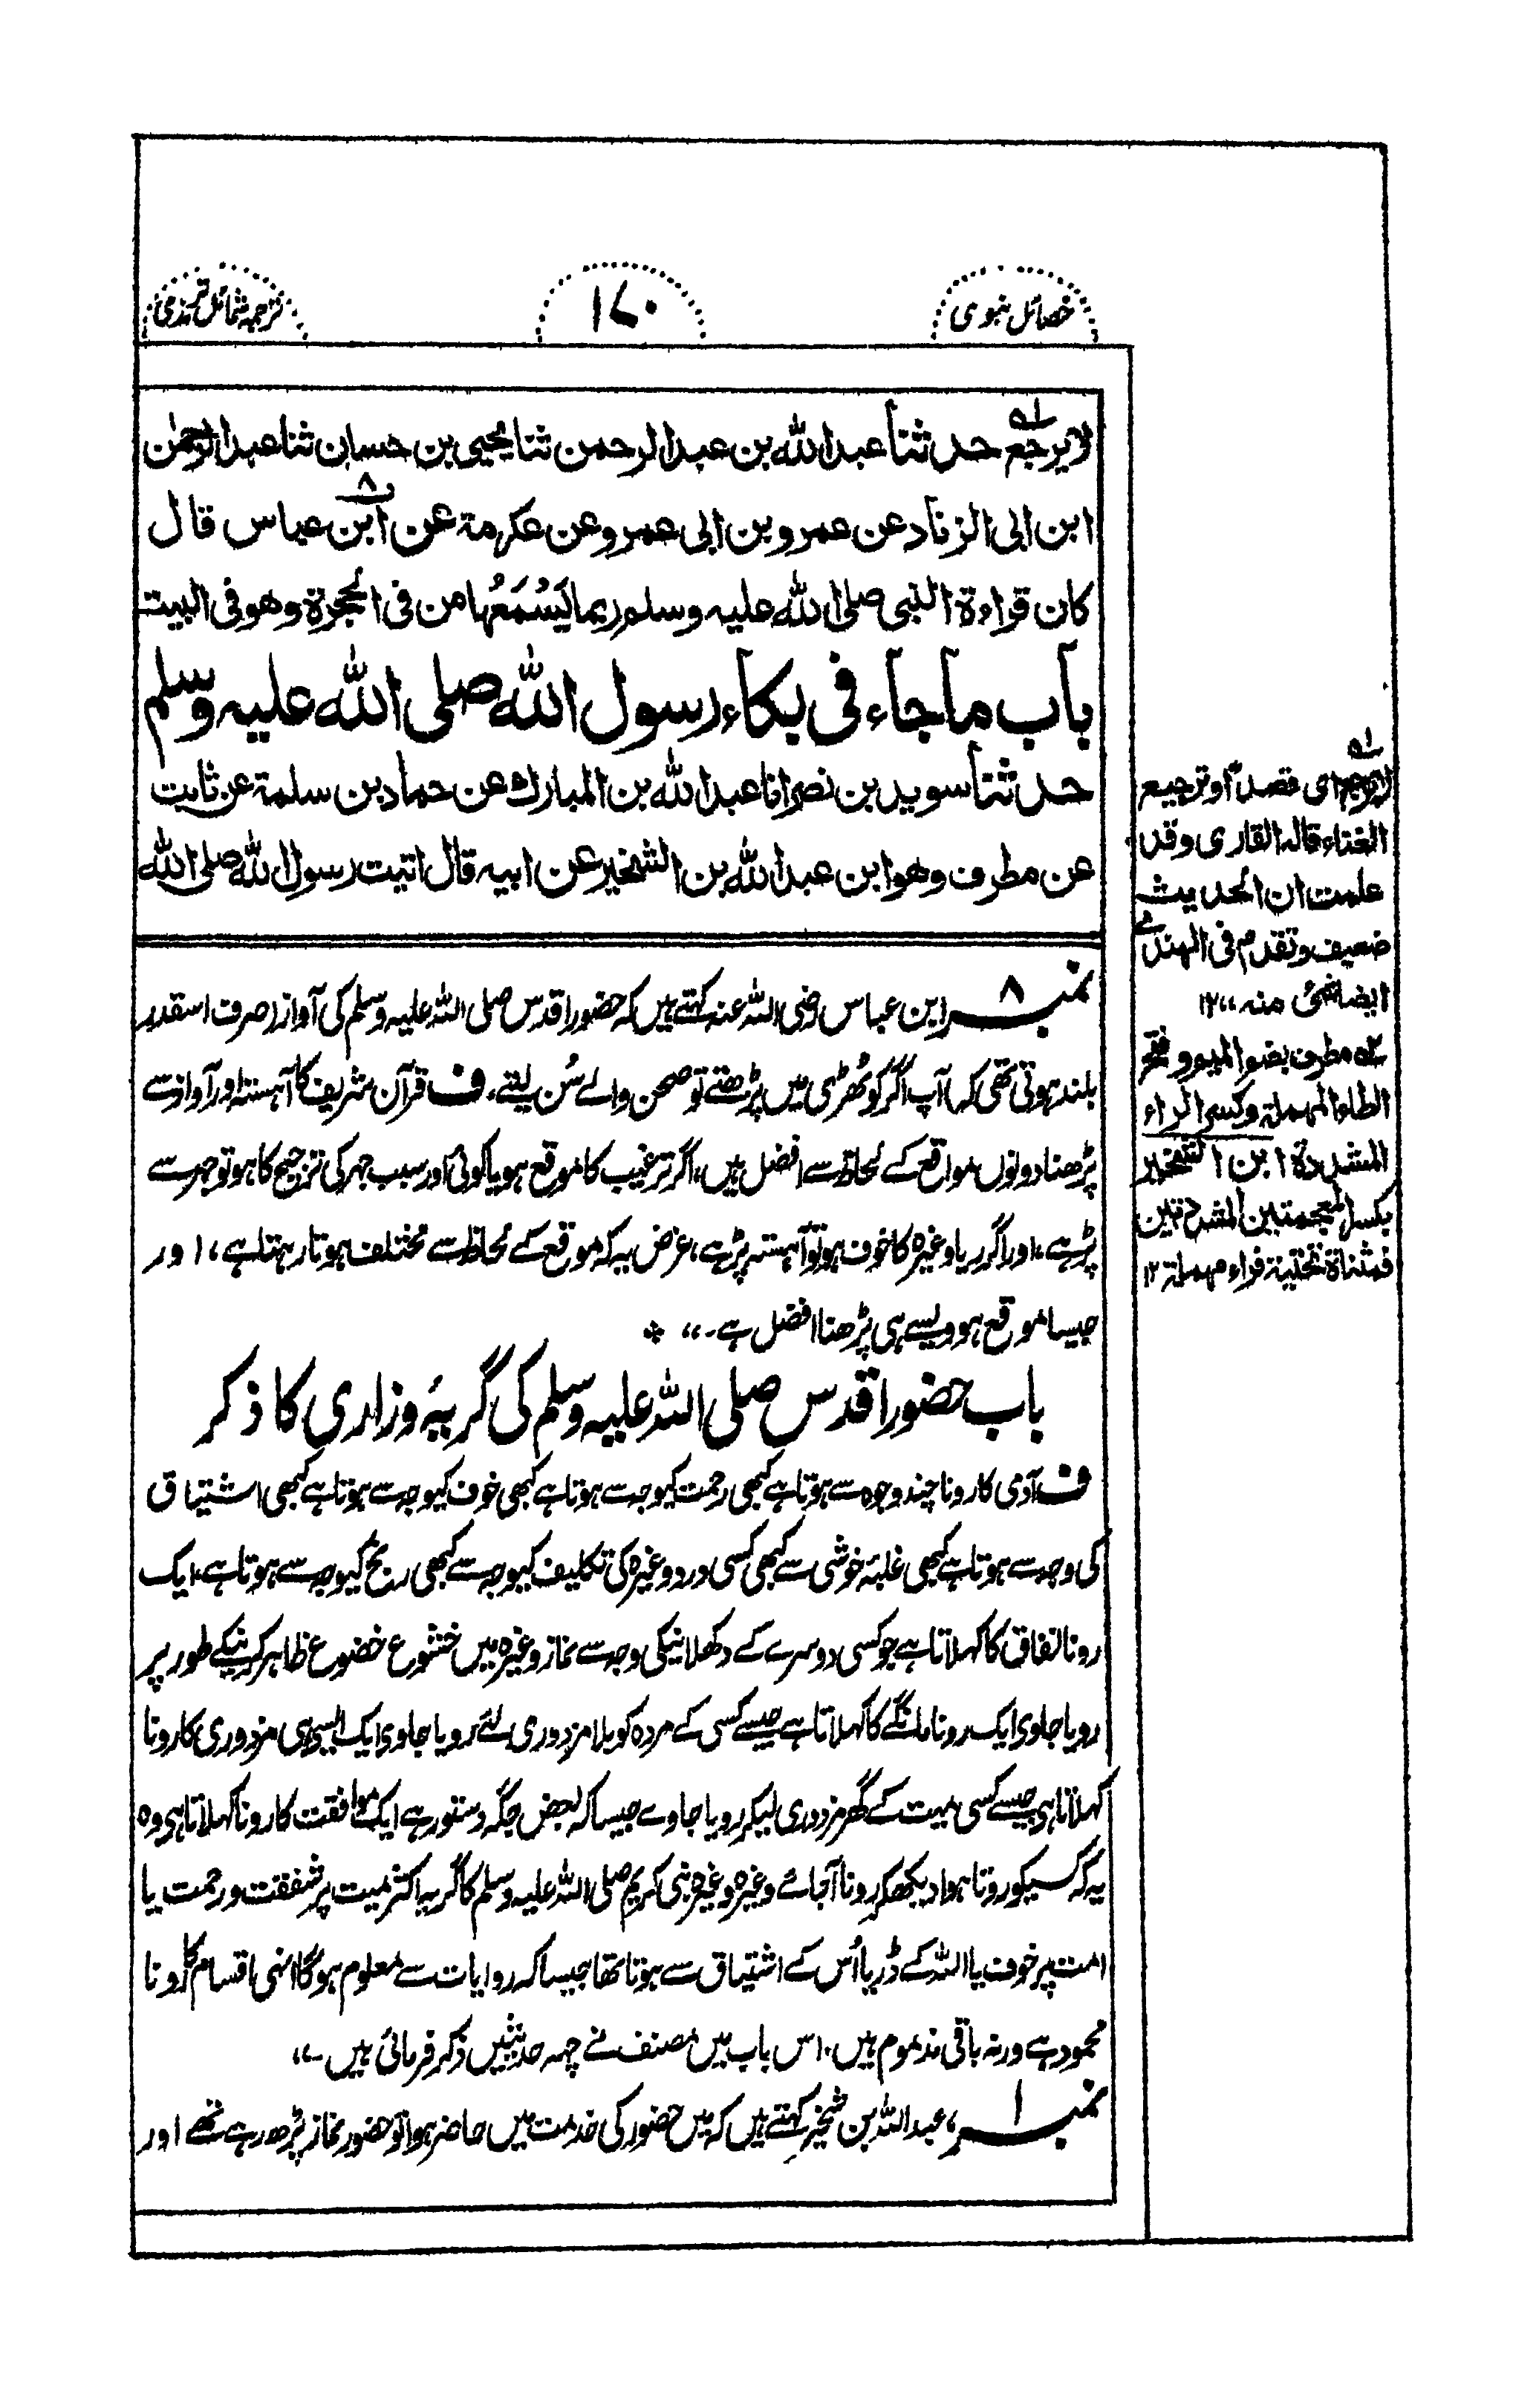 خصائل نبوی
۱۷۰
ترجمہ شمائل ترمذی
لا یرجع حدثنا عبدالله بن عبدالرحمن ثنا یحیی بن حسان ثنا عبدالرحمٰن
ابن ابی الزناد عن عمرو بن ابی عمرو عن عکرمة عن ابن عباس قال
کان قراءة النبی صلی الله علیه وسلم ربما یَسْمَعُها من فی الحجرة وهو فی البیت
باب ماجاء فی بکاء رسول الله صلی الله علیه وسلم
حدثنا سوید بن نصر انا عبدالله بن المبارك عن حماد بن سلمة عن ثابت
عن مطرف وهو ابن عبدالله بن الشخیر عن ابیه قال اتیت رسول الله صلی الله
نمبر ۸ ابن عباس رضی اللہ عنہ کہتے ہیں کہ حضور اقدس صلی اللہ علیہ وسلم کی آواز (صرف اسقدر
بلند ہوتی تھی کہ) آپ اگر کوٹھڑی میں پڑھتے تو صحن والے سُن لیتے۔ ف قرآن شریف کا آہستہ اور آواز سے
پڑھنا دونوں مواقع کے لحاظ سے افضل ہیں، اگر ترغیب کا موقع ہو یا کوئی اور سبب جہر کی ترجیح کا ہو تو جہر سے
پڑہے، اور اگر ریا وغیرہ کا خوف ہو تو آہستہ پڑہے، غرض یہ کہ موقع کے لحاظ سے مختلف ہوتا رہتا ہے، اور
جیسا موقع ہو ویسے ہی پڑھنا افضل ہے۔،،
باب حضور اقدس صلی اللہ علیہ وسلم کی گریۂ وزاری کا ذکر
ف آدمی کا رونا چند وجوہ سے ہوتا ہے کبھی رحمت کیوجہ سے ہوتا ہے کبھی خوف کیوجہ سے ہوتا ہے کبھی اشتیاق
کی وجہ سے ہوتا ہے کبھی غلبۂ خوشی سے کبھی کسی درد وغیرہ کی تکلیف کیوجہ سے کبھی رنج کیوجہ سے ہوتا ہے، ایک
رونا نفاق کا کہلاتا ہے جو کسی دوسرے کے دکھلانیکی وجہ سے نماز وغیرہ میں خشوع خضوع ظاہر کرنیکے طور پر
رویا جاوی ایک رونا مانگے کا کہلاتا ہے جیسے کسی کے مردہ کو بلا مزدوری لئے رویا جاوی ایک ایسی ہی مزدوری کا رونا
کہلاتا ہی جیسے کسی میت کے گھر مزدوری لیکر رویا جاوے جیسا کہ بعض جگہ دستور ہے ایک موافقت کا رونا کہلاتا ہی وہ
یہ کہ کسیکو روتا ہوا دیکھ کر رونا آجائے وغیرہ وغیرہ نبی کریم صلی اللہ علیہ وسلم کا گریہ اکثر میت پر شفقت و رحمت یا
امت پر خوف یا اللہ کے ڈر یا اُس کے اشتیاق سے ہوتا تھا جیسا کہ روایات سے معلوم ہوگا انہی اقسام کا رونا
محمود ہے ورنہ باقی مذموم ہیں۔ اس باب میں مصنف نے چہہ حدیثیں ذکر فرمائی ہیں۔،،
نمبر ۱، عبداللہ بن شخیر کہتے ہیں کہ میں حضور کی خدمت میں حاضر ہوا تو حضور نماز پڑھ رہے تھے اور
لا یرجع ای قصداً او ترجیع
الغناء قاله القاری وقد
علمت ان الحدیث
ضعیف وتقدم فی الهندی
ایضا شئ منه ،،۱۲
مطرف بضم المیم وفتح
الطاء المهملة وکسر الراء
المشددة ابن الشخیر
بکسر المعجمتین المشددتین
فمثناة تحتیة فراء مهملة ۱۲